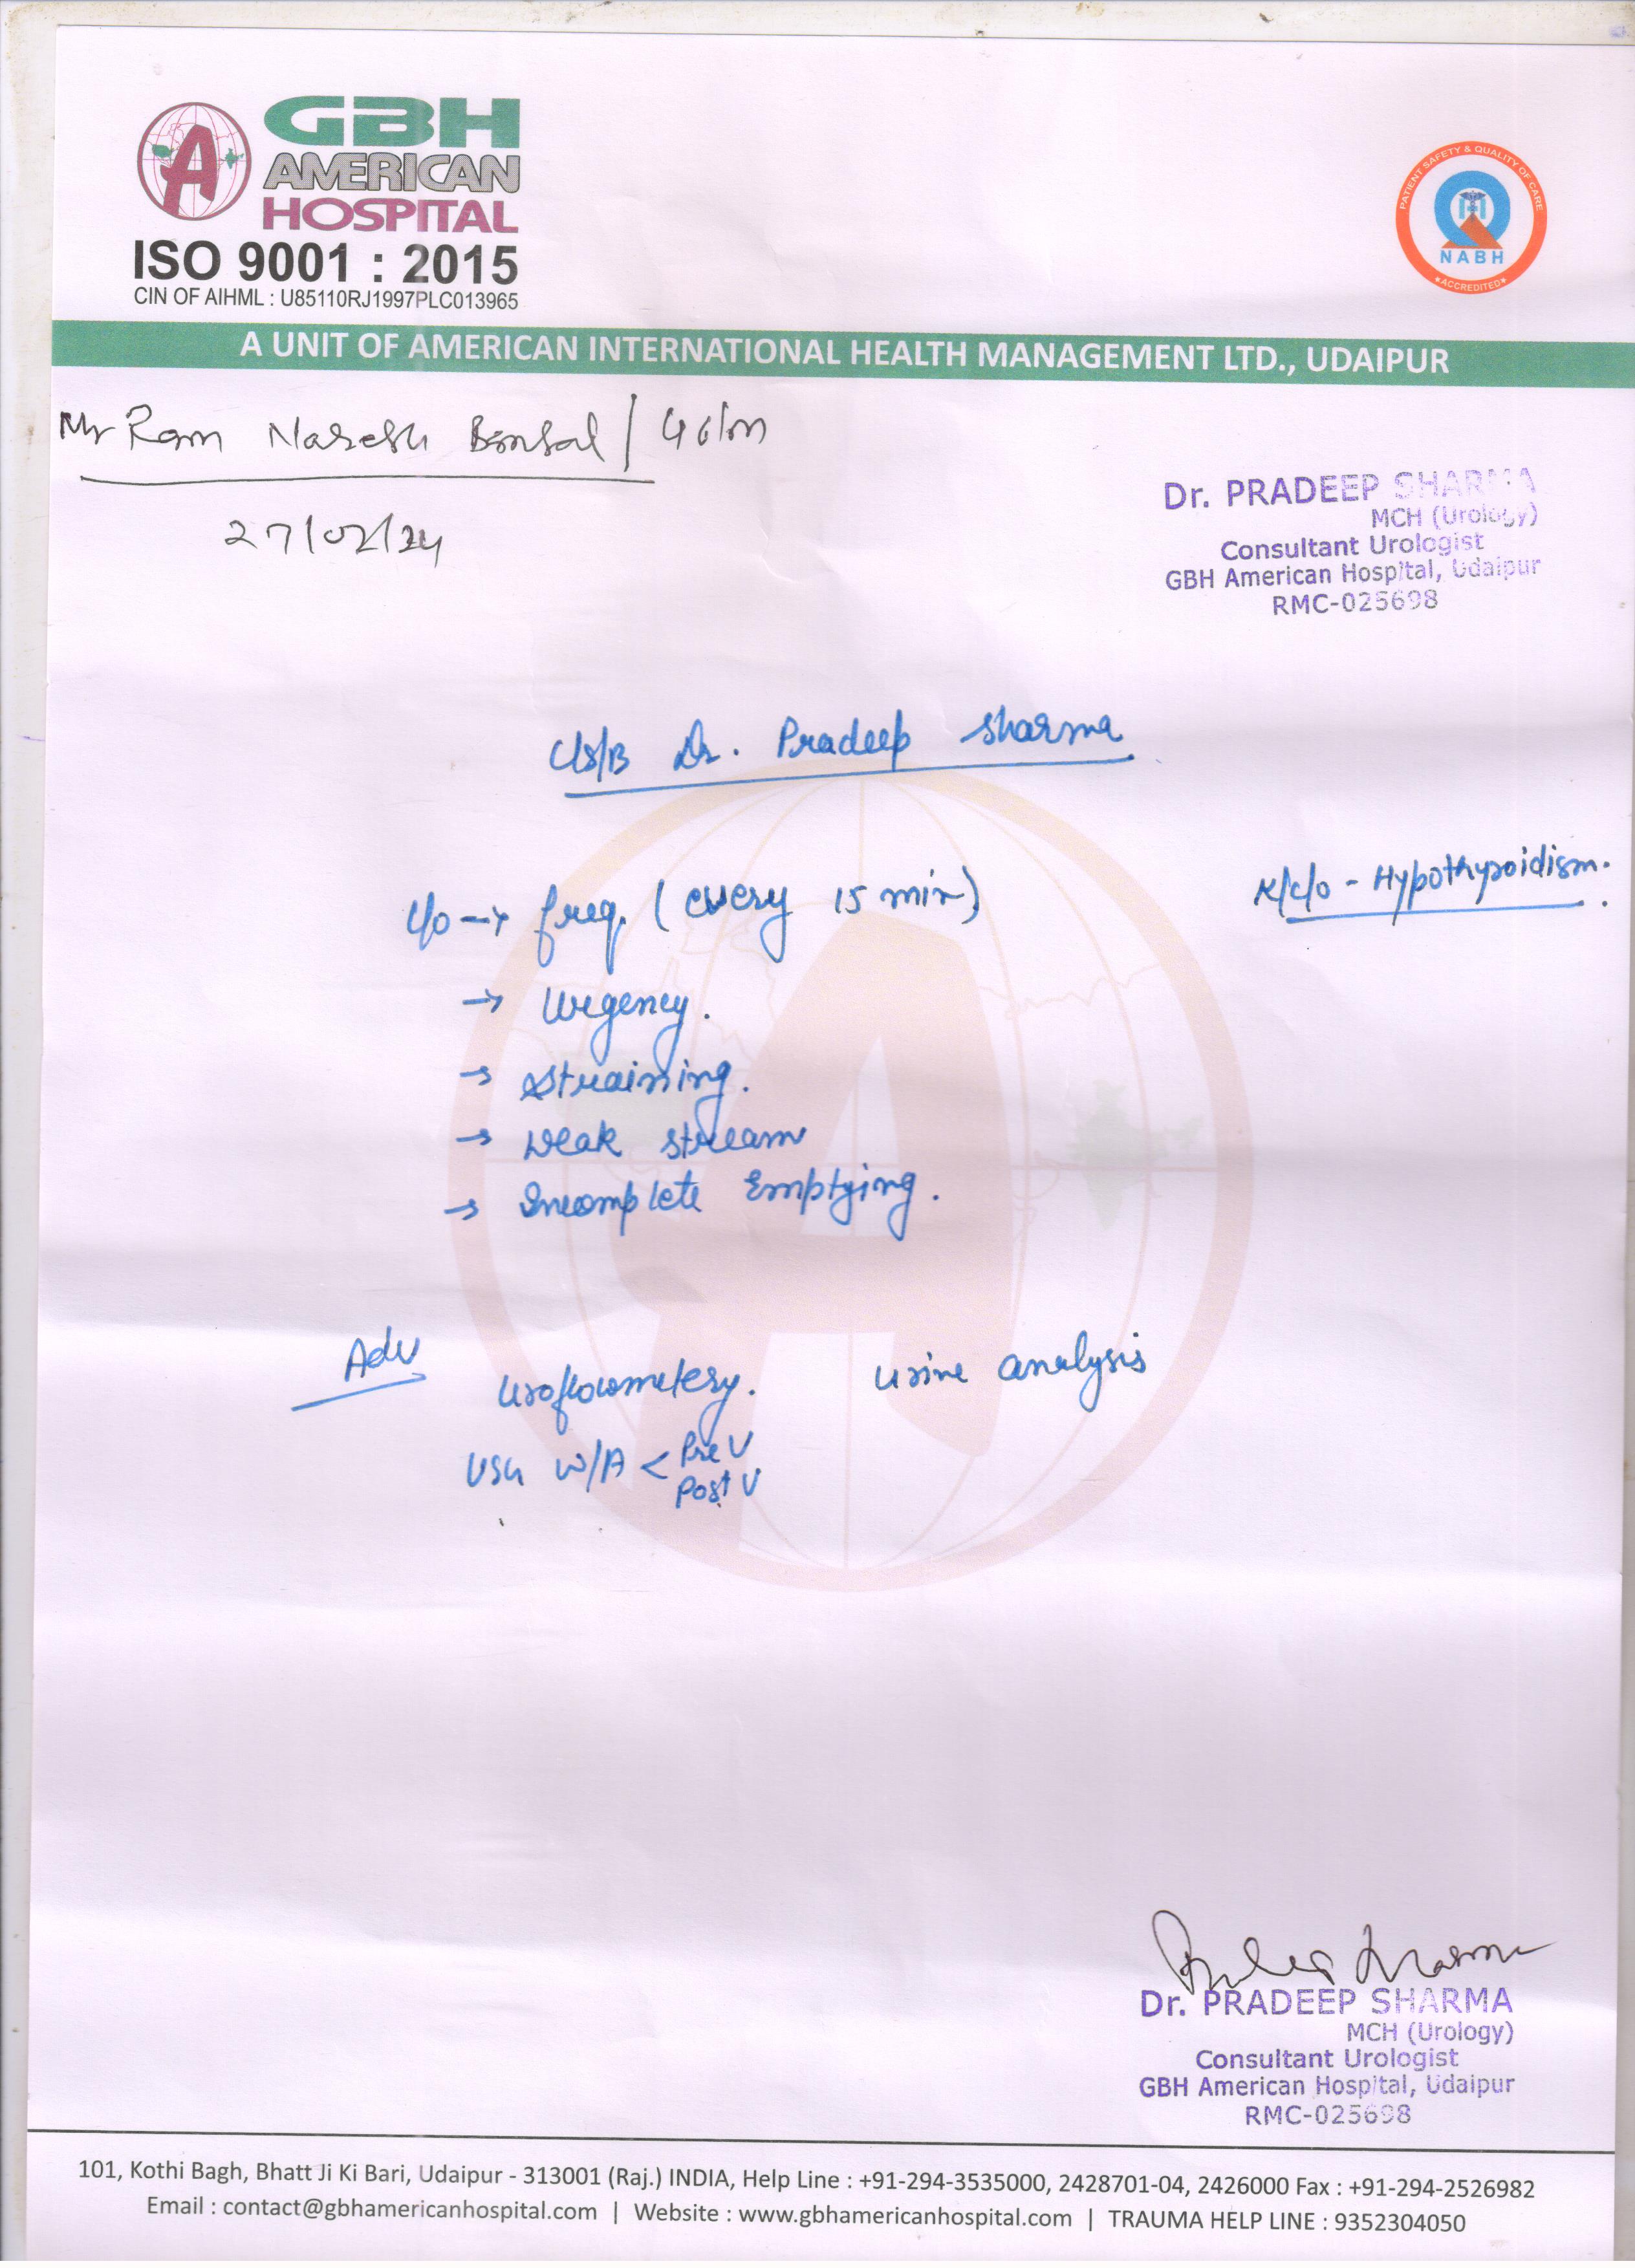 GBH
AMERICAN
HOSPITAL
ISO 9001 : 2015
CIN OF AIHML : U85110RJ1997PLC013965
PATIENT SAFETY & QUALITY OF CARE
NABH
ACCREDITED
A UNIT OF AMERICAN INTERNATIONAL HEALTH MANAGEMENT LTD., UDAIPUR
Mr Ram Naresh Bansal / 46/m
27/02/24
Dr. PRADEEP SHARMA
MCH (Urology)
Consultant Urologist
GBH American Hospital, Udaipur
RMC-025698
C/S/B Dr. Pradeep Sharma
K/c/o - Hypothyroidism.
c/o → freq. (every 15 min)
→ Urgency.
→ Straining.
→ Weak stream
→ Incomplete Emptying.
Adv
Uroflowmetery. Urine analysis
USG W/A < Pre V
Post V
Dr. PRADEEP SHARMA
MCH (Urology)
Consultant Urologist
GBH American Hospital, Udaipur
RMC-025698
101, Kothi Bagh, Bhatt Ji Ki Bari, Udaipur - 313001 (Raj.) INDIA, Help Line : +91-294-3535000, 2428701-04, 2426000 Fax : +91-294-2526982
Email : contact@gbhamericanhospital.com | Website : www.gbhamericanhospital.com | TRAUMA HELP LINE : 9352304050